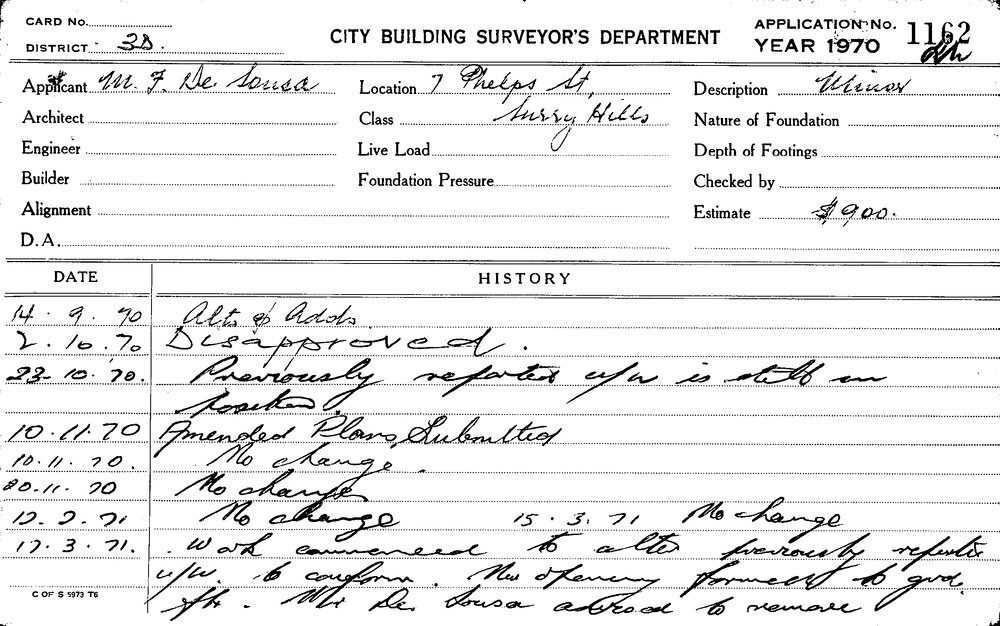 CARD No.
DISTRICT 3D.
CITY BUILDING SURVEYOR'S DEPARTMENT
APPLICATION No. 1162
YEAR 1970
Applicant M. F. De Sousa
Location 7 Phelps St,
Description Minor
Architect
Class Surry Hills
Nature of Foundation
Engineer
Live Load
Depth of Footings
Builder
Foundation Pressure
Checked by
Alignment
Estimate $900.
D.A.
DATE HISTORY
14. 9. 70 Alts & Adds.
2. 10. 70 Disapproved.
23. 10. 70. Previously reported u/w is still in
position.
10. 11. 70 Amended Plans Submitted
10. 11. 70. No change.
20. 11. 70 No change
No change 15. 3. 71 No change
17. 3. 71. Work commenced to alter previously reported
u/w. to conform. New opening formed to grd.
flr. Mr De Sousa advised to remove
C OF S 5973 T6